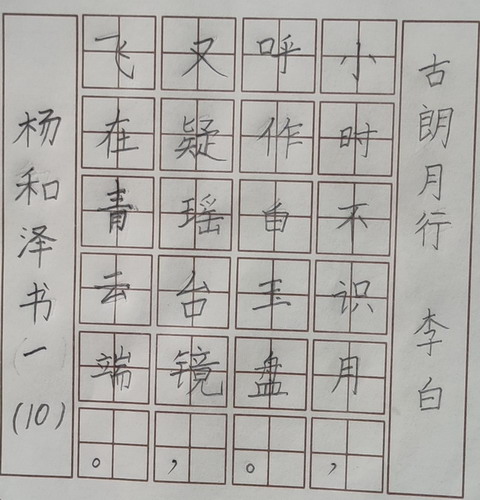 古朗月行 李白
小时不识月，
呼作白玉盘。
又疑瑶台镜，
飞在青云端。
杨和泽书一(10)